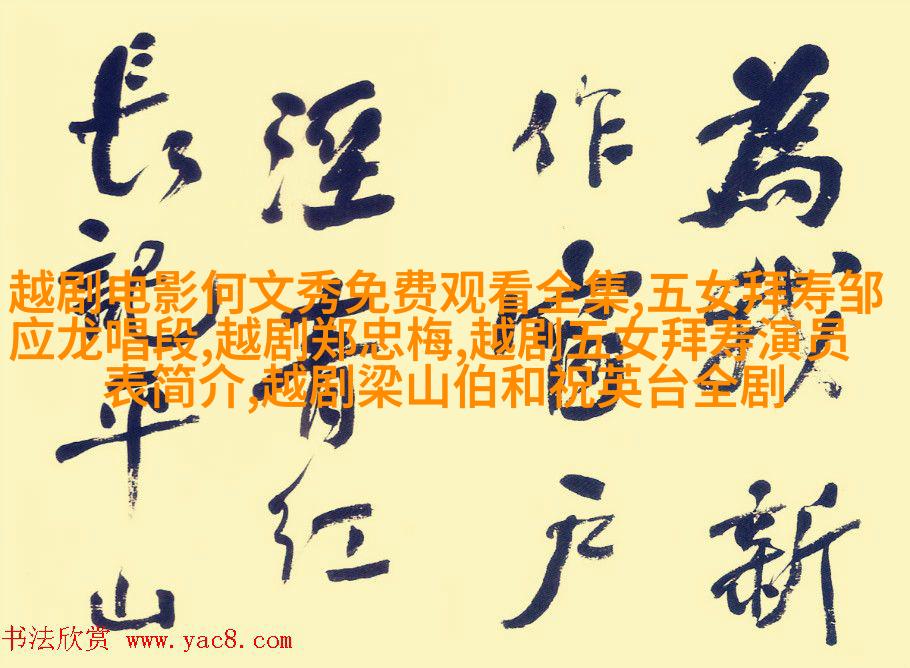 為我新
作窗户
溼青红
長記平山
越剧电影何文秀免费观看全集,五女拜寿邹
应龙唱段,越剧郑忠梅,越剧五女拜寿演员
表简介,越剧梁山伯和祝英台全剧
书法欣赏 www.yac8.com